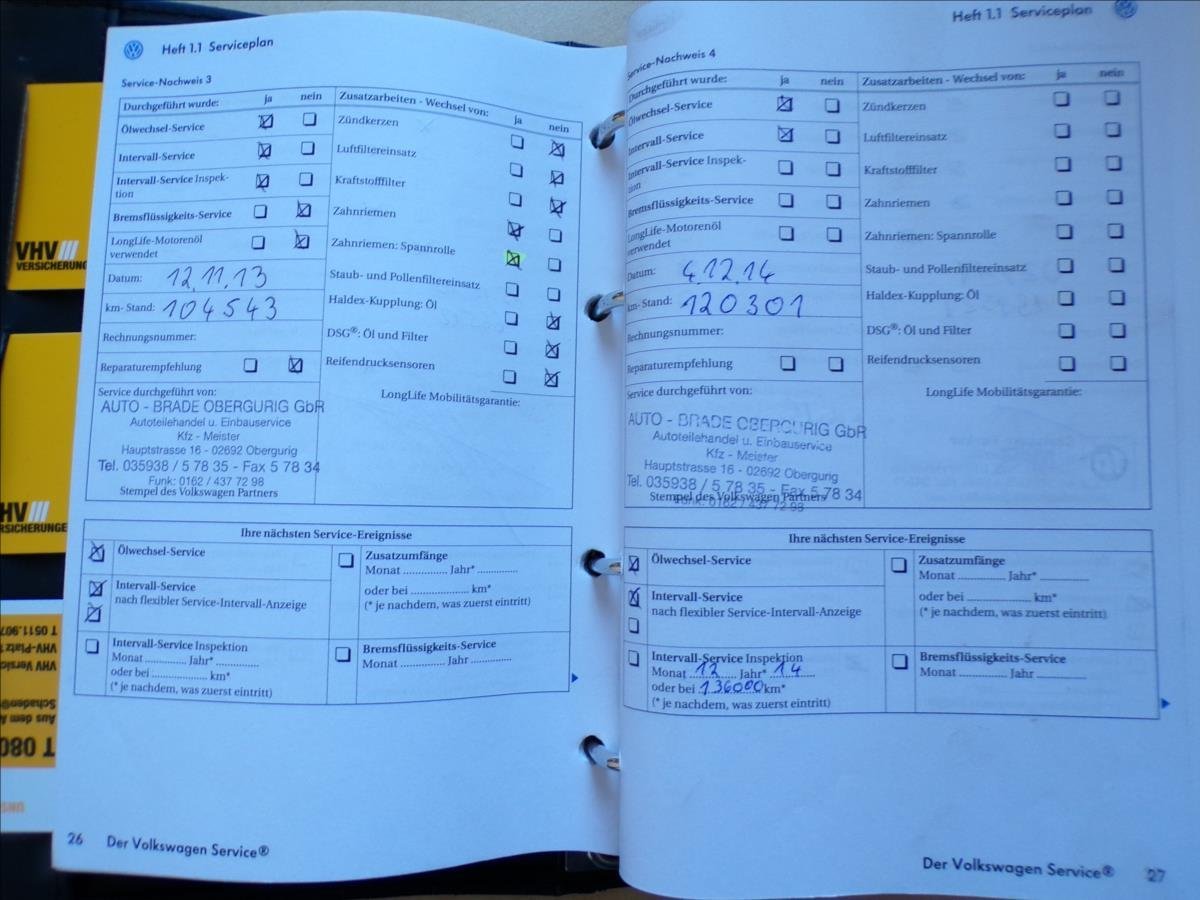 Heft 1.1 Serviceplan
Service-Nachweis 3
Durchgeführt wurde: ja nein
Ölwechsel-Service
Intervall-Service
Intervall-Service Inspek-
tion
Bremsflüssigkeits-Service
LongLife-Motorenöl
verwendet
Datum: 12.11.13
km- Stand: 104543
Rechnungsnummer:
Reparaturempfehlung
Service durchgeführt von:
AUTO - BRADE OBERGURIG GbR
Autoteilehandel u. Einbauservice
Kfz - Meister
Hauptstrasse 16 - 02692 Obergurig
Tel. 035938 / 5 78 35 - Fax 5 78 34
Funk: 0162 / 437 72 98
Stempel des Volkswagen Partners
Zusatzarbeiten - Wechsel von: ja nein
Zündkerzen
Luftfiltereinsatz
Kraftstofffilter
Zahnriemen
Zahnriemen: Spannrolle
Staub- und Pollenfiltereinsatz
Haldex-Kupplung: Öl
DSG®: Öl und Filter
Reifendrucksensoren
LongLife Mobilitätsgarantie:
Ihre nächsten Service-Ereignisse
Ölwechsel-Service
Intervall-Service
nach flexibler Service-Intervall-Anzeige
Intervall-Service Inspektion
Monat .............. Jahr* ..............
oder bei .................... km*
(* je nachdem, was zuerst eintritt)
Zusatzumfänge
Monat .............. Jahr* ..............
oder bei .................... km*
(* je nachdem, was zuerst eintritt)
Bremsflüssigkeits-Service
Monat .............. Jahr ..............
26 Der Volkswagen Service®
Heft 1.1 Serviceplan
Service-Nachweis 4
Durchgeführt wurde: ja nein
Ölwechsel-Service
Intervall-Service
Intervall-Service Inspek-
tion
Bremsflüssigkeits-Service
LongLife-Motorenöl
verwendet
Datum: 4.12.14
km- Stand: 120301
Rechnungsnummer:
Reparaturempfehlung
Service durchgeführt von:
AUTO - BRADE OBERGURIG GbR
Autoteilehandel u. Einbauservice
Kfz - Meister
Hauptstrasse 16 - 02692 Obergurig
Tel. 035938 / 5 78 35 - Fax 5 78 34
Stempel des Volkswagen Partners
Funk: 0162 / 437 72 98
Zusatzarbeiten - Wechsel von: ja nein
Zündkerzen
Luftfiltereinsatz
Kraftstofffilter
Zahnriemen
Zahnriemen: Spannrolle
Staub- und Pollenfiltereinsatz
Haldex-Kupplung: Öl
DSG®: Öl und Filter
Reifendrucksensoren
LongLife Mobilitätsgarantie:
Ihre nächsten Service-Ereignisse
Ölwechsel-Service
Intervall-Service
nach flexibler Service-Intervall-Anzeige
Intervall-Service Inspektion
Monat 12 Jahr* 14
oder bei 136000 km*
(* je nachdem, was zuerst eintritt)
Zusatzumfänge
Monat .............. Jahr* ..............
oder bei .................... km*
(* je nachdem, was zuerst eintritt)
Bremsflüssigkeits-Service
Monat .............. Jahr ..............
Der Volkswagen Service® 27
VHV
VERSICHERUNG
HV
RSICHERUNGE
T 0511.907
VHV-Platz 1
VHV Versiche
Schaden@
Aus dem A
T 080